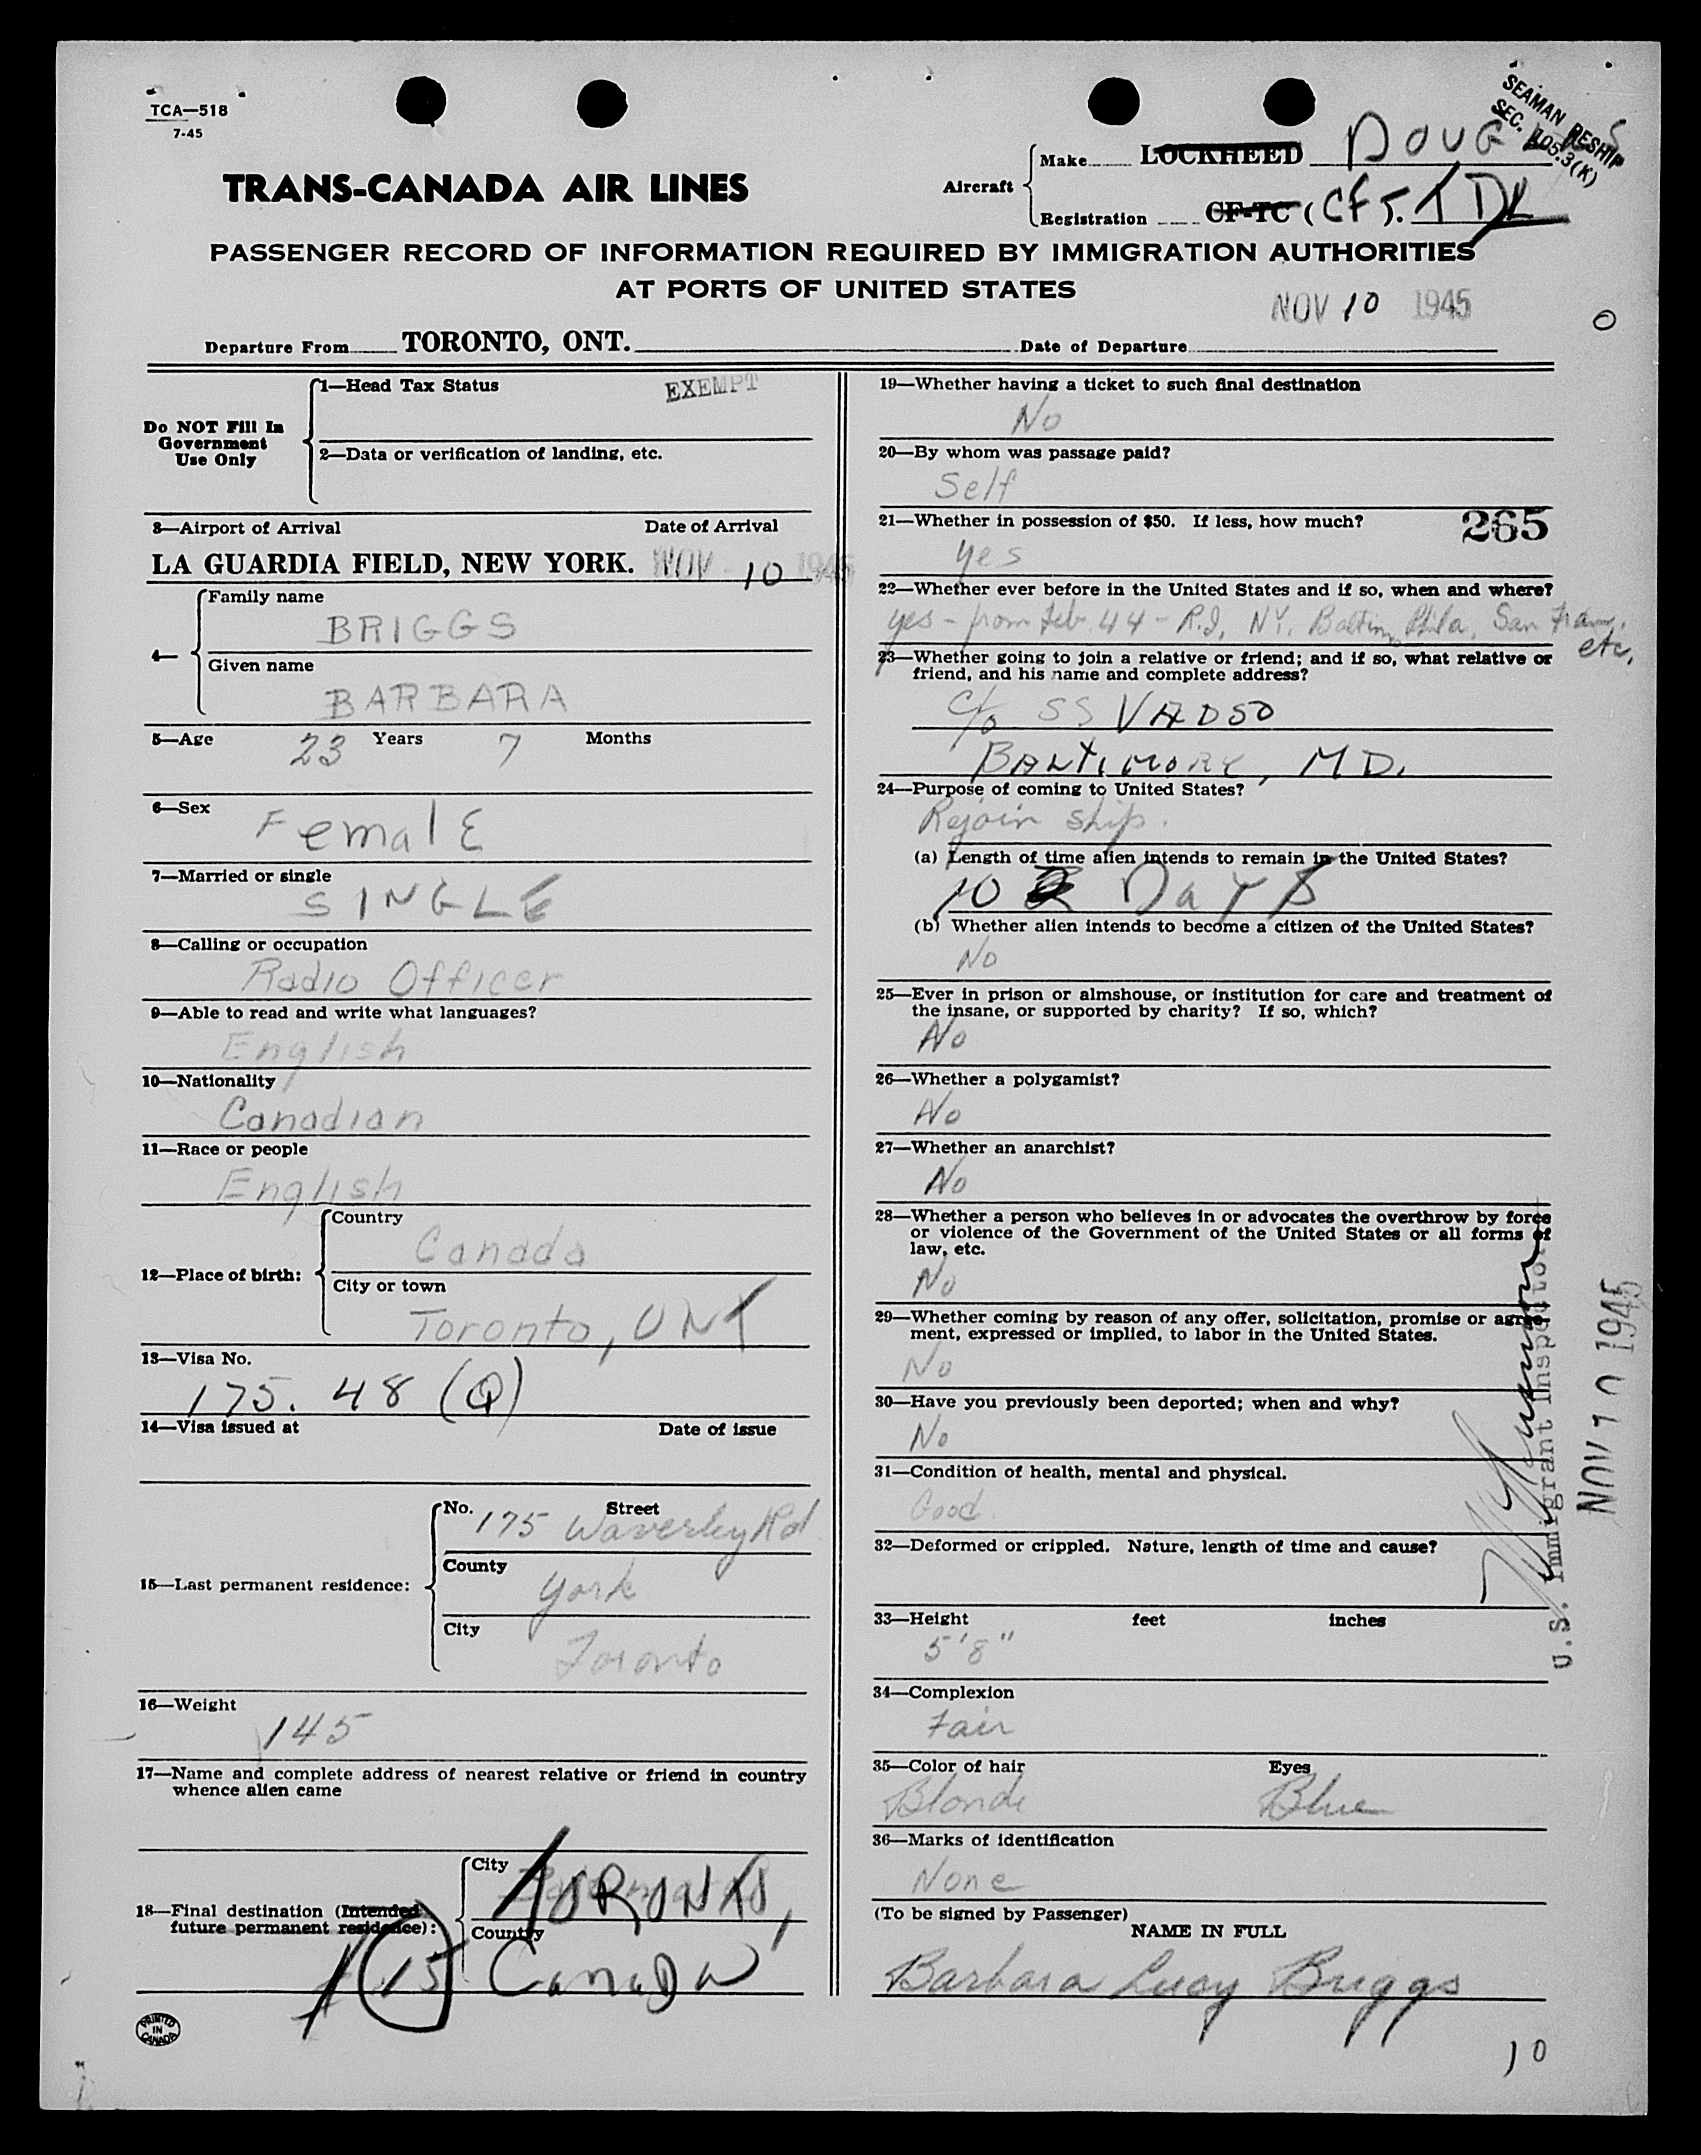 TCA—518
7-45
SEAMAN RESHIP
SEC. 105.3(K)
TRANS-CANADA AIR LINES
Aircraft
Make LOCKHEED DOUGLAS
Registration CF-TC (CF). TDL
PASSENGER RECORD OF INFORMATION REQUIRED BY IMMIGRATION AUTHORITIES
AT PORTS OF UNITED STATES
NOV 10 1945
0
Departure From TORONTO, ONT. Date of Departure
Do NOT Fill In
Government
Use Only
1—Head Tax Status EXEMPT
2—Data or verification of landing, etc.
3—Airport of Arrival Date of Arrival
LA GUARDIA FIELD, NEW YORK. NOV 10 1945
4—
Family name
BRIGGS
Given name
BARBARA
5—Age 23 Years 7 Months
6—Sex
Female
7—Married or single
SINGLE
8—Calling or occupation
Radio Officer
9—Able to read and write what languages?
English
10—Nationality
Canadian
11—Race or people
English
12—Place of birth:
Country
Canada
City or town
Toronto, ONT
13—Visa No.
175. 48 (Q)
14—Visa issued at Date of issue
15—Last permanent residence:
No. Street
175 Waverley Rd
County
York
City
Toronto
16—Weight
145
17—Name and complete address of nearest relative or friend in country
whence alien came
18—Final destination (Intended
future permanent residence):
City
TORONTO,
Country
Canada
15
PRINTED
IN
CANADA
19—Whether having a ticket to such final destination
No
20—By whom was passage paid?
Self
21—Whether in possession of $50. If less, how much? 265
yes
22—Whether ever before in the United States and if so, when and where?
yes - from Feb. 44 - R.I, NY. Baltim Phila, San Fran,
etc.
23—Whether going to join a relative or friend; and if so, what relative or
friend, and his name and complete address?
c/o SS VADSO
BALTIMORE, MD.
24—Purpose of coming to United States?
Rejoin ship.
(a) Length of time alien intends to remain in the United States?
10 DAYS
(b) Whether alien intends to become a citizen of the United States?
No
25—Ever in prison or almshouse, or institution for care and treatment of
the insane, or supported by charity? If so, which?
No
26—Whether a polygamist?
No
27—Whether an anarchist?
No
28—Whether a person who believes in or advocates the overthrow by force
or violence of the Government of the United States or all forms of
law, etc.
No
29—Whether coming by reason of any offer, solicitation, promise or agree-
ment, expressed or implied, to labor in the United States.
No
30—Have you previously been deported; when and why?
No
31—Condition of health, mental and physical.
Good.
32—Deformed or crippled. Nature, length of time and cause?
33—Height feet inches
5'8"
34—Complexion
Fair
35—Color of hair Eyes
Blonde Blue
36—Marks of identification
None
(To be signed by Passenger)
NAME IN FULL
Barbara Lucy Briggs
10
U.S. Immigrant Inspector
NOV 10 1945